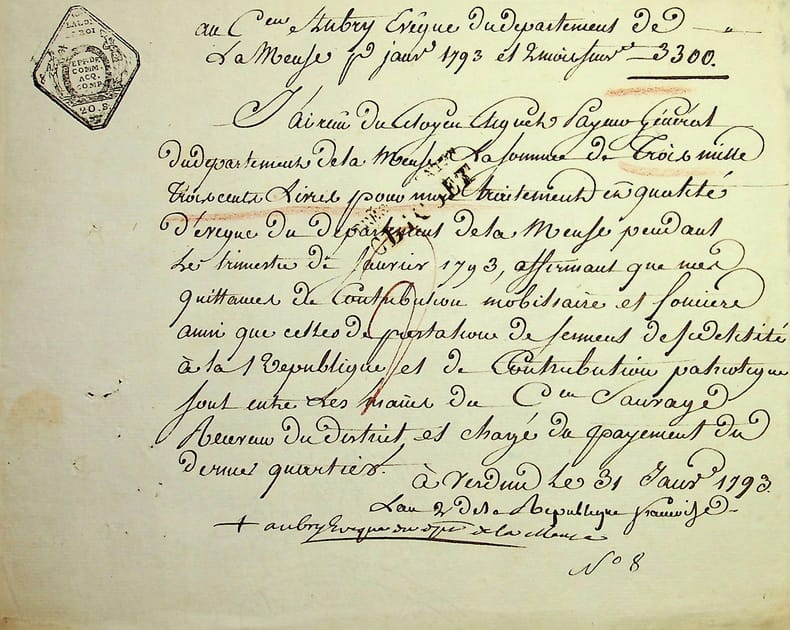 LA LOI
LE ROI
EP. DE
COMM.
ACQ.
COMP.
20. S.
au C.en Aubry Evêque du departement de
La Meuse p.r janv.r 1793 et 2 mois suiv.ts 3300.
J'ai reçu du Citoyen Cliquet Payeur Général
du departement de la Meuse La somme de Trois mille
Trois cents Livres pour mon traitement en qualité
d'évêque du departement de la Meuse pendant
Le trimestre de Janvier 1793, affirmant que mes
quittances de Contribution mobiliaire et fonciere
ainsi que celles de prestation de serment de fidelitité
à la République et de Contribution patriotique
sont entre Les mains du C.en Sauvage
Receveur du district et chargé du payement du
dernier quartier.
à Verdun Le 31 Janv.r 1793.
L'an 2 de la Republique francoise
+ aubry Evêque du dpt de la Meuse
N.o 8
CLIQUET